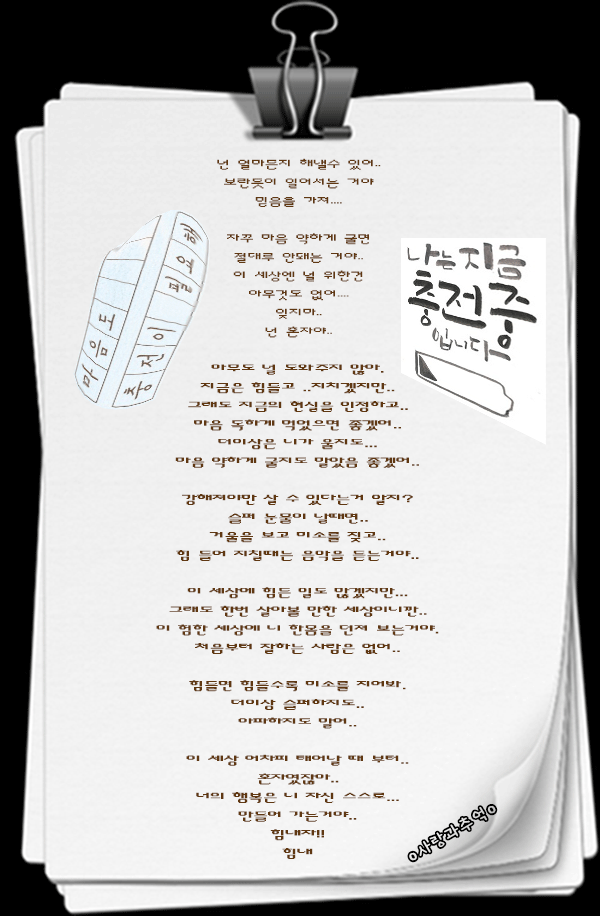 넌 얼마든지 해낼수 있어..
보란듯이 일어서는 거야
믿음을 가져....
자꾸 마음 약하게 굴면
절대루 안돼는 거야..
이 세상엔 널 위한건
아무것도 없어....
잊지마..
넌 혼자야..
마음도
충전이
필요해
나는 지금
충전중
입니다
아무도 널 도와주지 않아.
지금은 힘들고 ..지치겠지만..
그래도 지금의 현실을 인정하고..
마음 독하게 먹었으면 좋겠어..
더이상은 니가 울지도...
마음 약하게 굴지도 말았음 좋겠어..
강해져야만 살 수 있다는거 알지?
슬퍼 눈물이 날때면..
거울을 보고 미소를 짖고..
힘 들어 지칠때는 음악을 듣는거야..
이 세상에 힘든 일도 많겠지만...
그래도 한번 살아볼 만한 세상이니깐..
이 험한 세상에 니 한몸을 던져 보는거야.
처음부터 잘하는 사람은 없어..
힘들면 힘들수록 미소를 지어봐.
더이상 슬퍼하지도..
아파하지도 말어..
이 세상 어차피 태어날 때 부터..
혼자였잖아..
너의 행복은 니 자신 스스로...
만들어 가는거야..
힘내자!!
힘내
o사랑과추억o